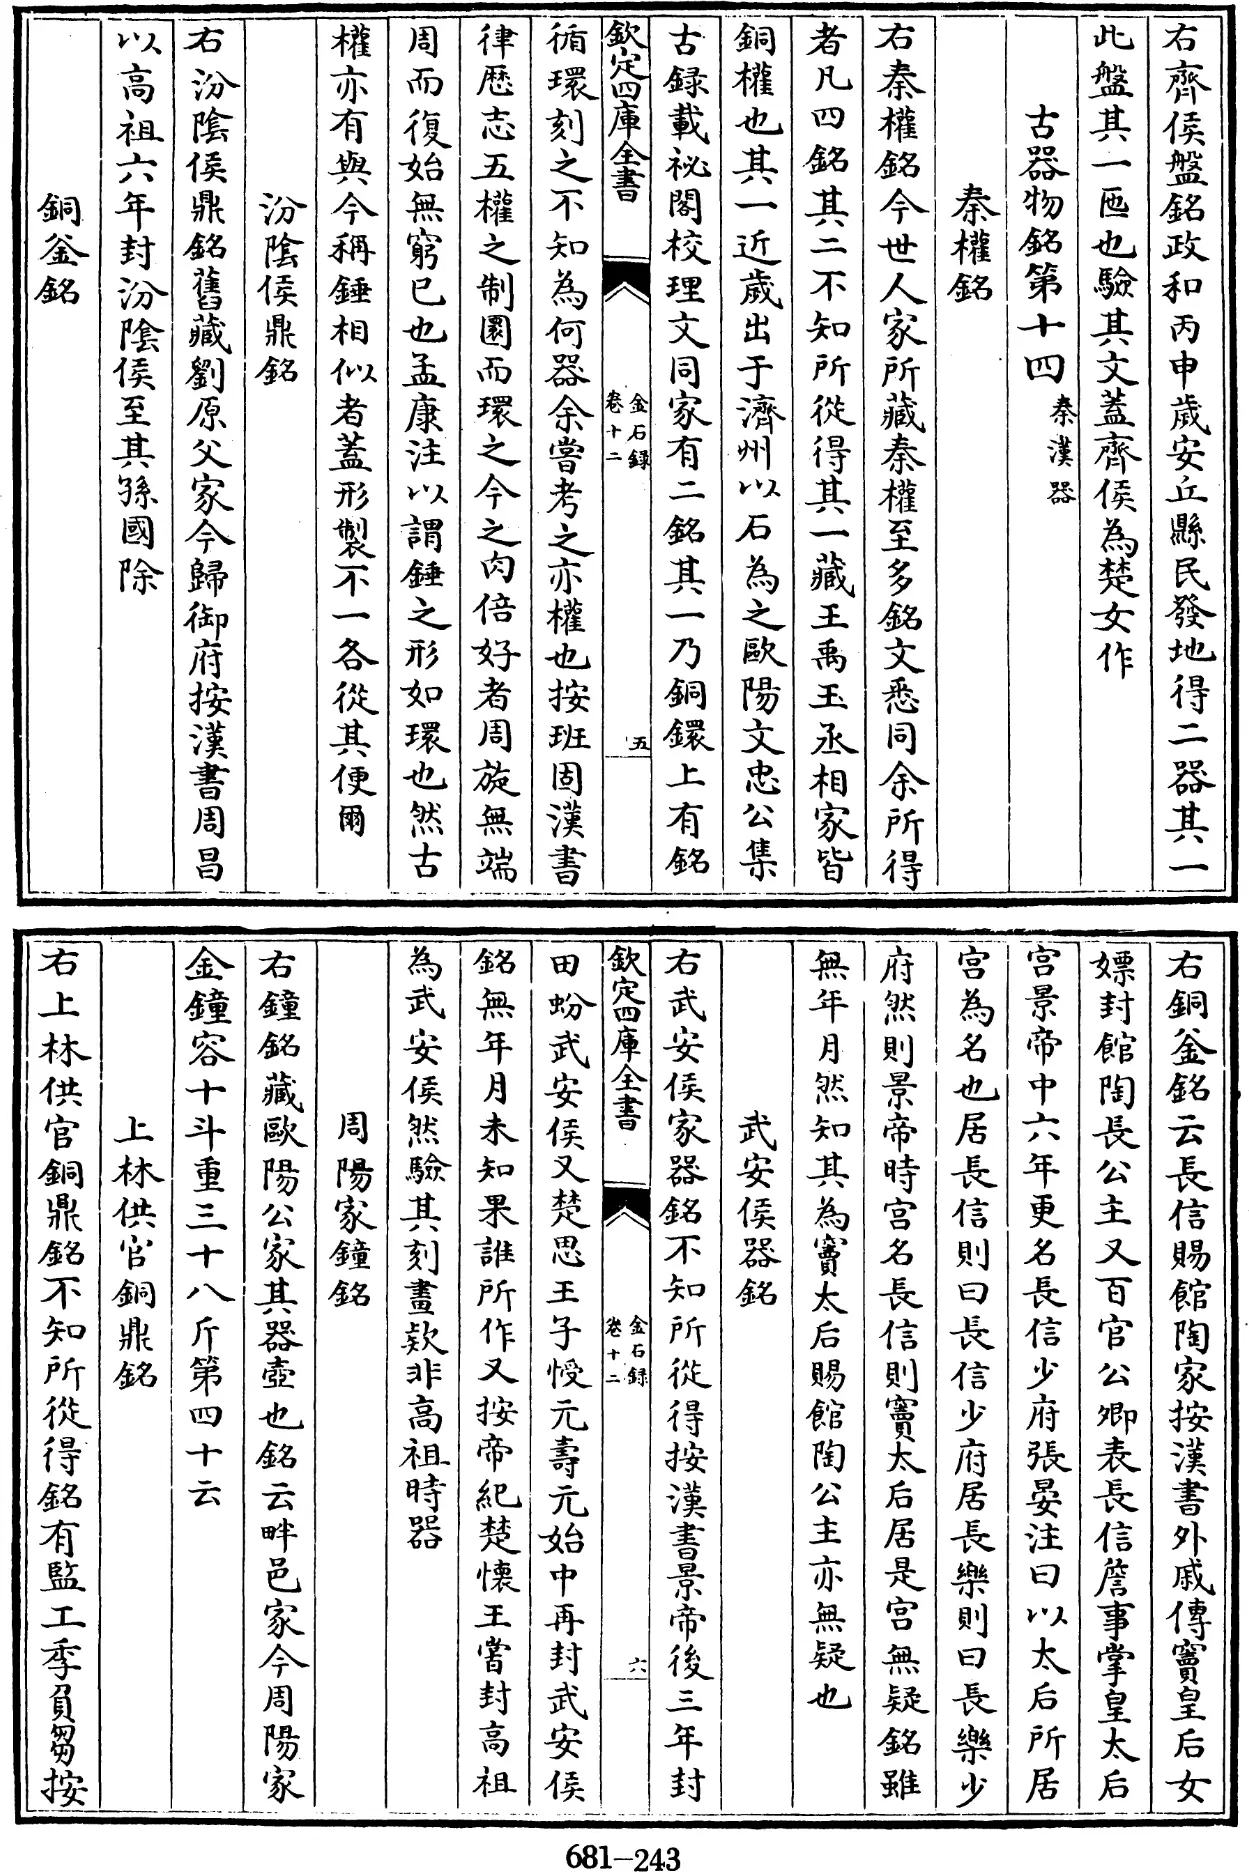 右齊侯盤銘政和丙申歲安丘縣民發地得二器其一
此盤其一匜也驗其文蓋齊侯為楚女作
古器物銘第十四秦漢器
秦權銘
右秦權銘今世人家所藏秦權至多銘文悉同余所得
者凡四銘其二不知所從得其一藏王禹玉丞相家皆
銅權也其一近歲出于濟州以石為之歐陽文忠公集
古録載祕閣校理文同家有二銘其一乃銅鐶上有銘
欽定四庫全書
金石録
卷十二
五
循環刻之不知為何器余嘗考之亦權也按班固漢書
律厯志五權之制圜而環之今之肉倍好者周旋無端
周而復始無窮已也孟康注以謂錘之形如環也然古
權亦有與今稱錘相似者蓋形製不一各從其便爾
汾陰侯鼎銘
右汾陰侯鼎銘舊藏劉原父家今歸御府按漢書周昌
以高祖六年封汾陰侯至其孫國除
銅釜銘
右銅釜銘云長信賜館陶家按漢書外戚傳竇皇后女
嫖封館陶長公主又百官公卿表長信詹事掌皇太后
宫景帝中六年更名長信少府張晏注曰以太后所居
宫為名也居長信則曰長信少府居長樂則曰長樂少
府然則景帝時宫名長信則竇太后居是宫無疑銘雖
無年月然知其為竇太后賜館陶公主亦無疑也
武安侯器銘
右武安侯家器銘不知所從得按漢書景帝後三年封
欽定四庫全書
金石録
卷十二
六
田蚡武安侯又楚思王子慢元壽元始中再封武安侯
銘無年月未知果誰所作又按帝紀楚懷王嘗封高祖
為武安侯然驗其刻畫欵非高祖時器
周陽家鐘銘
右鐘銘藏歐陽公家其器壺也銘云畔邑家今周陽家
金鐘容十斗重三十八斤第四十云
上林供官銅鼎銘
右上林供官銅鼎銘不知所從得銘有監工季負芻按
681-243